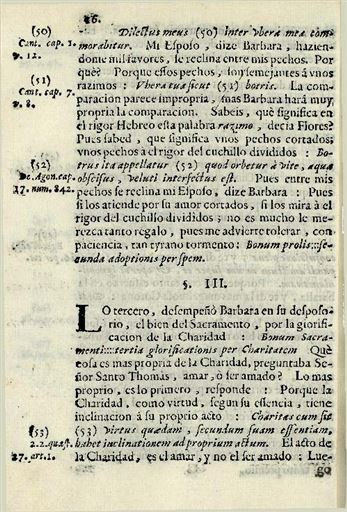 26.
(50)
Cant. cap. 1.
v. 12.
(51)
Cant. cap. 7.
v. 8.
(52)
De Agon. cap.
17. num. 842.
(53)
2.2. quæst.
27. art. 1.
Dilectus meus (50) inter vbera mea com-
morabitur. Mi Esposo, dize Barbara, hazien-
dome mil favores, se reclina entre mis pechos. Por
què? Porque essos pechos, son semejantes à vnos
razimos: Vbera tua sicut (51) botris. La com-
paracion parece impropria, mas Barbara harà muy
propria la comparacion. Sabeis, què significa en
el rigor Hebreo esta palabra razimo, decia Flores?
Pues sabed, que significa vnos pechos cortados;
vnos pechos al rigor del cuchillo divididos: Bo-
trus ita appellatur (52) quod orbetur à vite, aquæ
obscisus, veluti interfectus est. Pues entre mis
pechos se reclina mi Esposo, dize Barbara: Pues
si los atiende por su amor cortados, si los mira à el
rigor del cuchillo divididos; no es mucho le me-
rezca tanto regalo, pues me advierte tolerar, con
paciencia, tan tyrano tormento: Bonum prolis:::se-
cunda adoptionis per spem.
§. III.
LO tercero, desempeñò Barbara en su desposo-
rio, el bien del Sacramento, por la glorifi-
cacion de la Charidad: Bonum Sacra-
menti:::tertia glorificationis per Charitatem Què
cosa es mas propria de la Charidad, preguntaba Se-
ñor Santo Thomàs, amar, ò ser amado? Lo mas
proprio, es lo primero, responde: Porque la
Charidad, como virtud, segun su essencia, tiene
inclinacion à su proprio acto: Charitas cum sit
(53) virtus quædam, secundum suam essentiam,
habet inclinationem ad proprium actum. El acto de
la Charidad, es el amar, y no el ser amado: Lue-
go